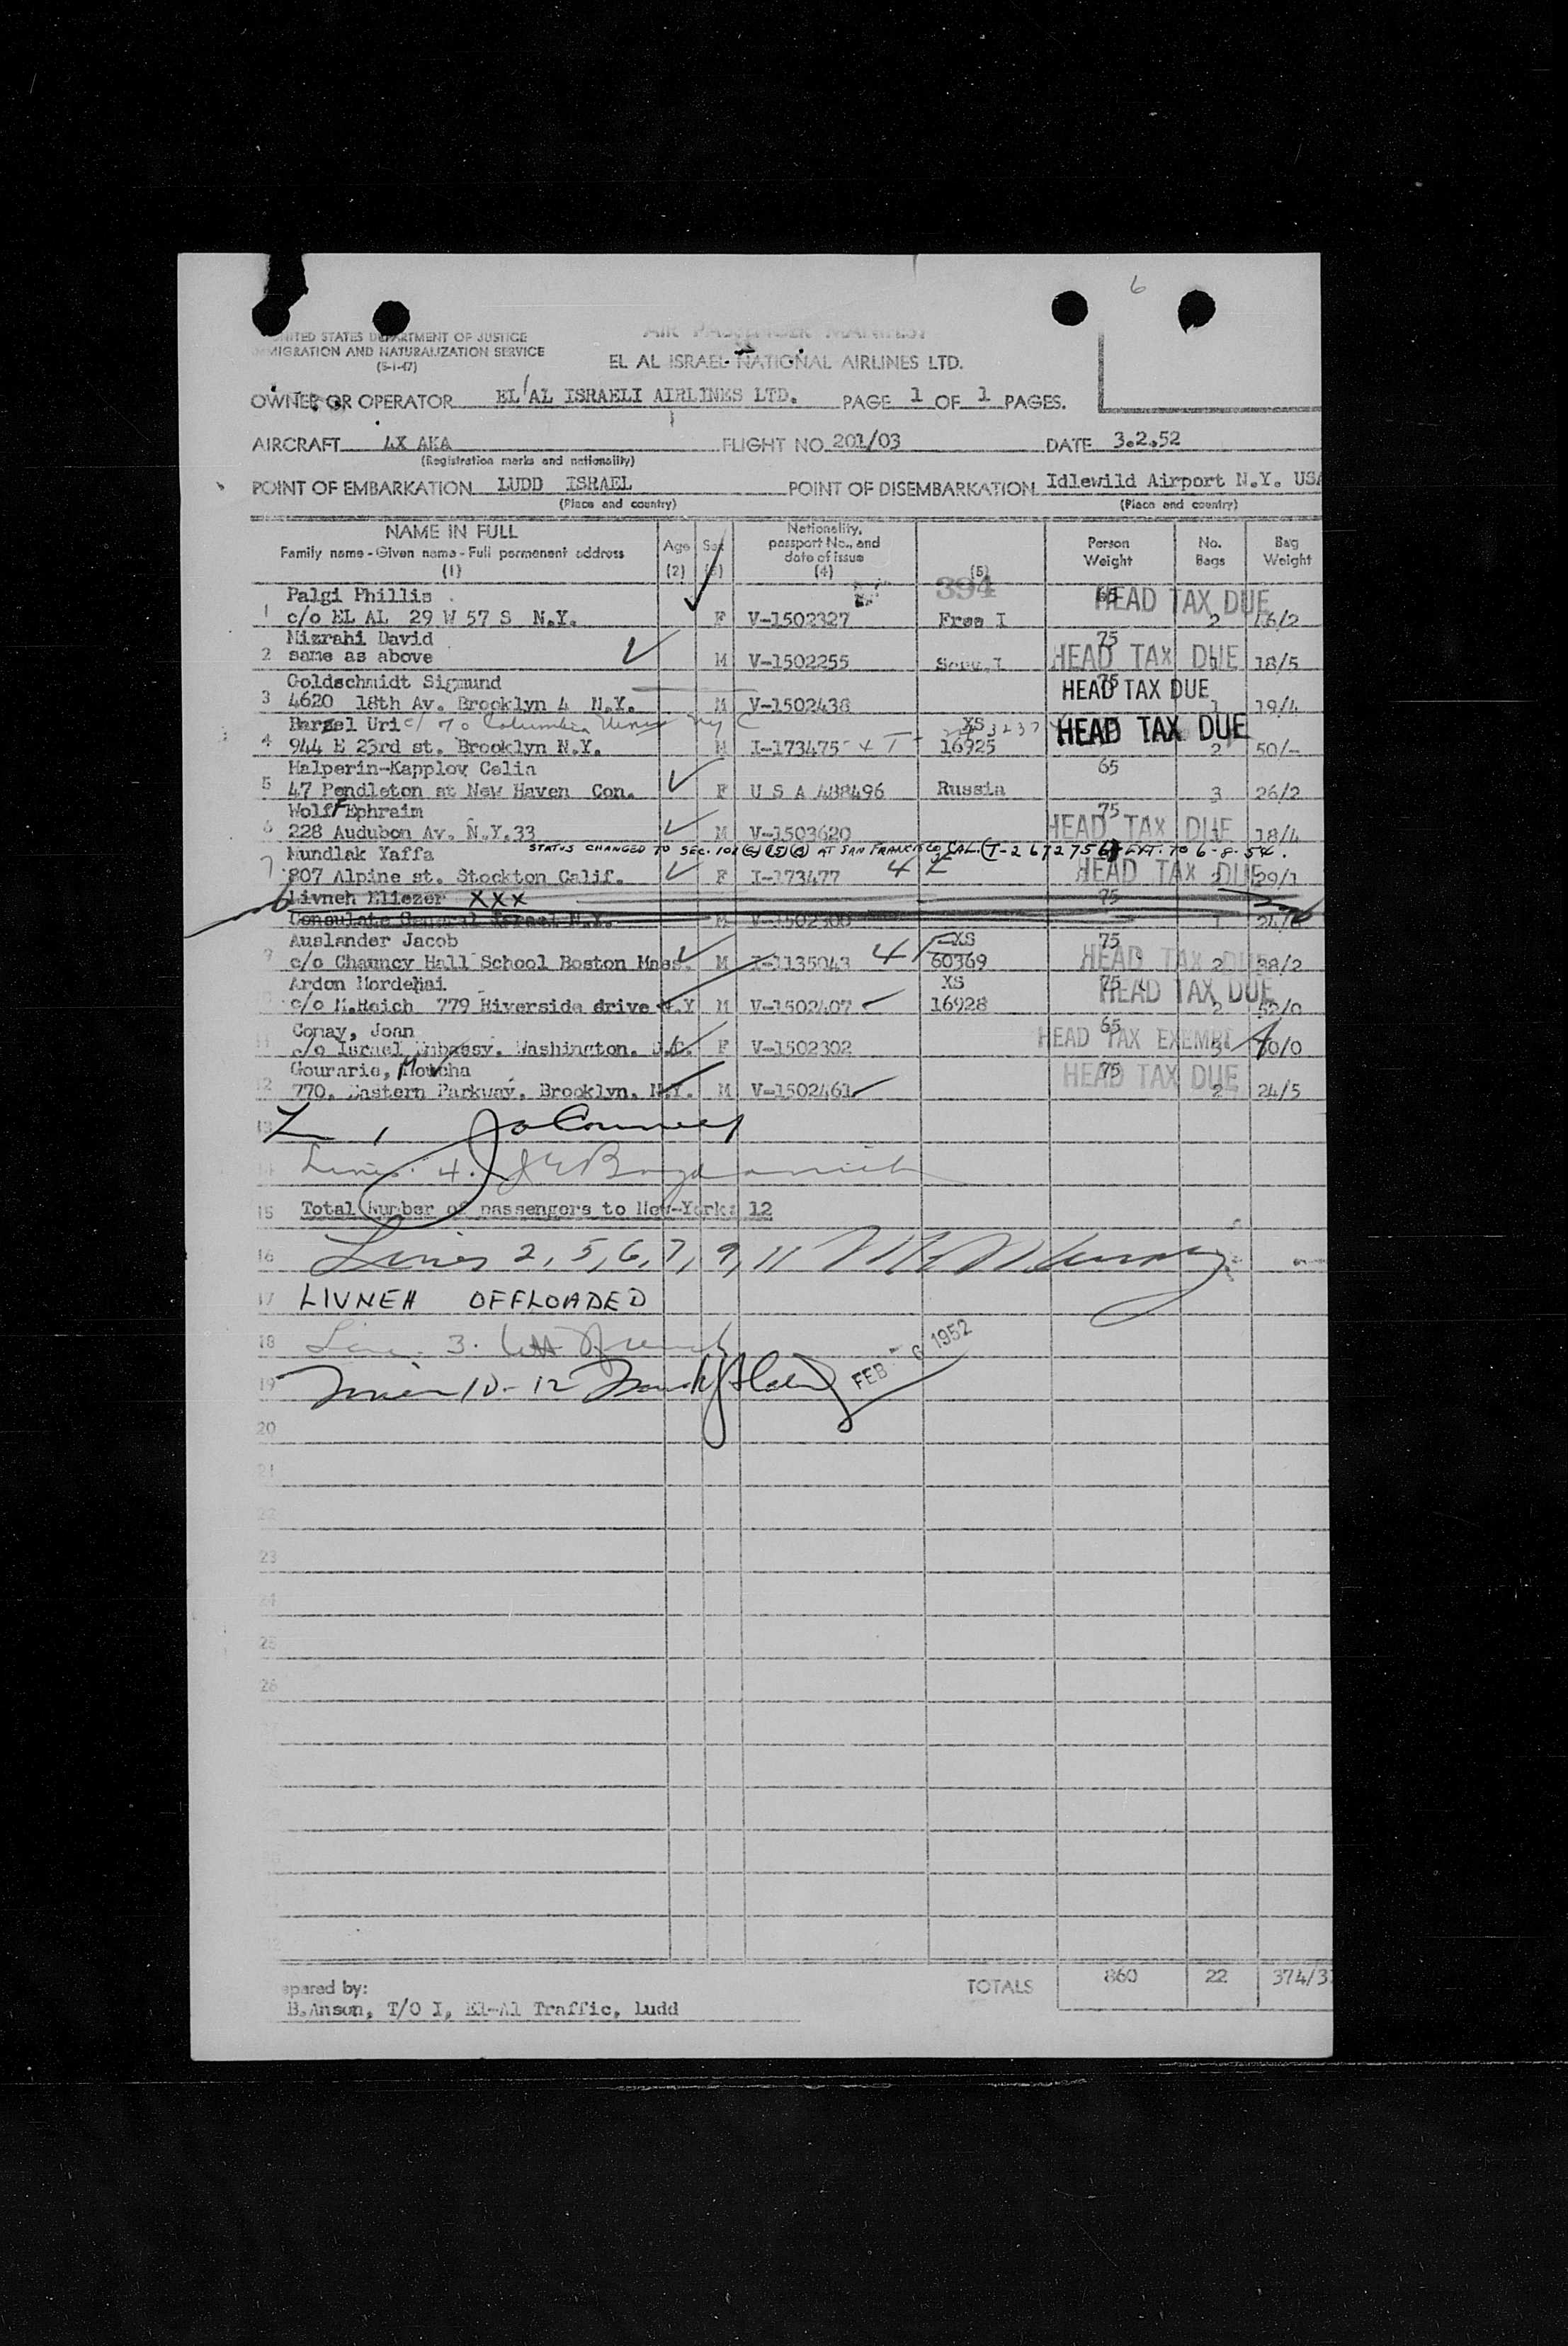 6
UNITED STATES DEPARTMENT OF JUSTICE
IMMIGRATION AND NATURALIZATION SERVICE
(5-1-47)
AIR PASSENGER MANIFEST
EL AL ISRAEL NATIONAL AIRLINES LTD.
OWNER OR OPERATOR EL AL ISRAELI AIRLINES LTD. PAGE 1 OF 1 PAGES.
AIRCRAFT 4X AKA FLIGHT NO. 201/03 DATE 3.2.52
(Registration marks and nationality)
POINT OF EMBARKATION LUDD ISRAEL POINT OF DISEMBARKATION Idlewild Airport N.Y. USA
(Place and country) (Place and country)
NAME IN FULL Age Sex Nationality, passport No., and date of issue Person Weight No. Bags Bag Weight
Family name - Given name - Full permanent address
(1) (2) (3) (4) (5)
394
Palgi Phillis 65 HEAD TAX DUE
1 c/o EL AL 29 W 57 S N.Y. F V-1502327 Free I 2 16/2
Mizrahi David 75
2 same as above M V-1502255 HEAD TAX DUE 18/5
Goldschmidt Sigmund 75
3 4620 18th Av. Brooklyn 4 N.Y. M V-1502438 HEAD TAX DUE 1 19/4
Barzel Uri c/o Columbia Univ NYC XS HEAD TAX DUE
4 944 E 23rd st. Brooklyn N.Y. M I-173475 16925 2 50/-
Halperin-Kapplov Celia 65
5 47 Pendleton st New Haven Con. F U S A 488496 Russia 3 26/2
Wolff Ephraim 75
6 228 Audubon Av. N.Y.33 M V-1503620 HEAD TAX DUE 18/4
STATUS CHANGED TO SEC. 101 (a)(15)(B) AT SAN FRANCISCO CAL. (T-2672756) EXT. TO 6-8-54.
Mundlak Yaffa
7 807 Alpine st. Stockton Calif. F I-173477 4 E HEAD TAX DUE 2 29/1
Livneh Eliezer XXX 75
Consulate General Israel N.Y. M V-1502300 1 24/
Auslander Jacob XS 75
9 c/o Chauncy Hall School Boston Mass. M I-1135043 4 E 60369 HEAD TAX DUE 2 38/2
Ardon Mordehai XS 75
c/o M.Reich 779 Riverside drive N.Y M V-1502407 16928 HEAD TAX DUE 2 52/0
Conay, Joan 65
11 c/o Israel Embassy. Washington. D.C. F V-1502302 HEAD TAX EXEMPT
Gourarie, 75
12 770. Eastern Parkway. Brooklyn. N.Y. M V-1502461 HEAD TAX DUE 2 24/5
13
14 Line 4.
15 Total Number of passengers to New-York: 12
16 Lines 2, 5, 6, 7, 9, 11
17 LIVNEH OFFLOADED
18 Line 3.
19 10-12 FEB - 6 1952
20
21
22
23
24
25
26
Prepared by: TOTALS 860 22 374/37
B.Anson, T/O I, El-Al Traffic, Ludd